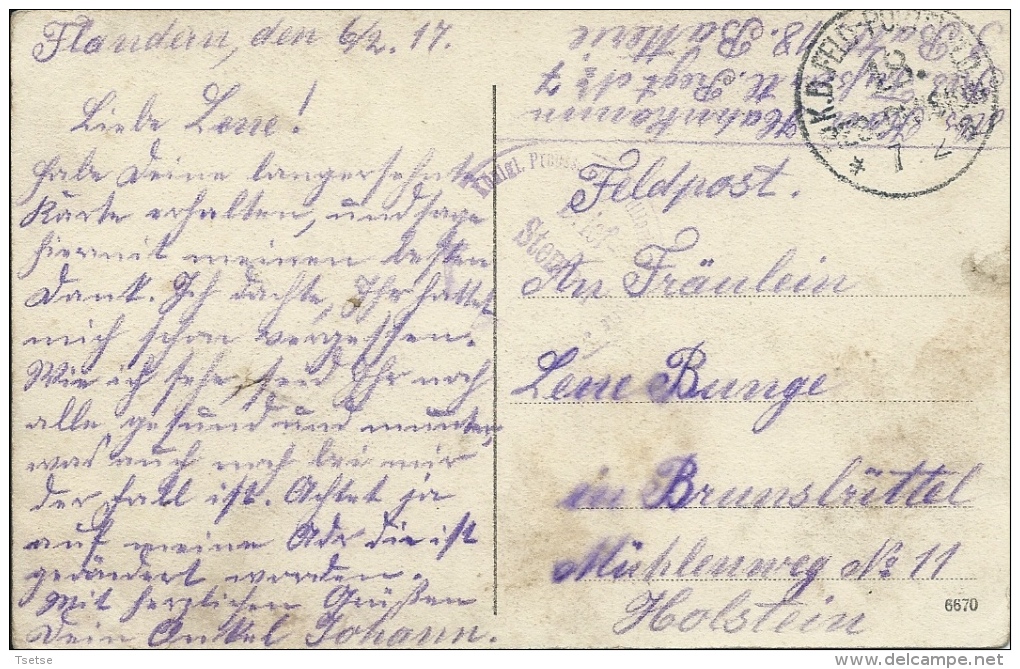 Flandern, den 6/2. 17.
Liebe Lene!
habe Deine langersehnte
Karte erhalten, und sage
hiermit meinen besten
Dank. Ich dachte, Ihr hattet
mich schon vergessen.
Wie ich sehe, seid Ihr noch
alle gesund und munter,
was auch noch bei mir
der Fall ist. Achtet ja
auf meine Adr die ist
geändert worden.
Mit herzlichen Grüßen
Dein Onkel Johann.
8. Batterie
Regt № 7
Feldpost.
An Fräulein
Lene Bunge
in Brunsbüttel
Mühlenweg № 11
Holstein
6670
Königl. Preuss.
Tsetse
delcampe.net